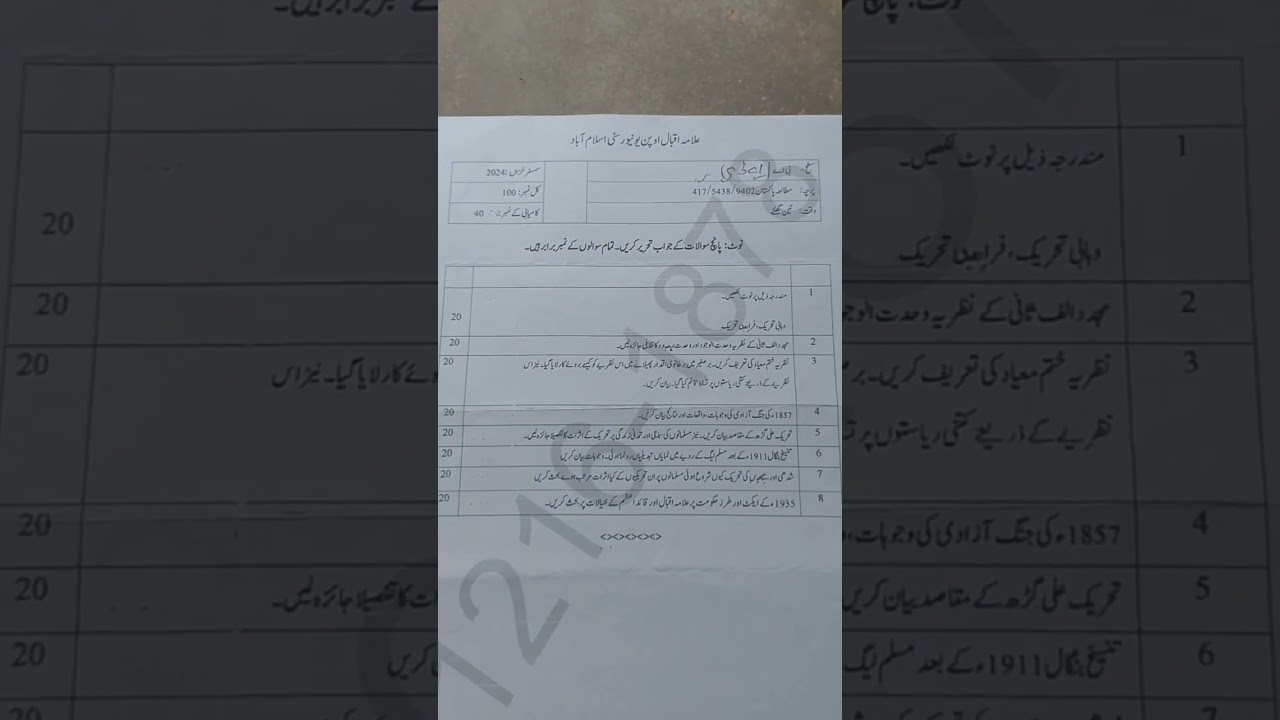 علامہ اقبال اوپن یونیورسٹی اسلام آباد
سطح: بی اے سمسٹر خزاں: 2024
پرچہ: مطالعہ پاکستان 417/5438/9402 کل نمبر: 100
وقت: تین گھنٹے کامیابی کے نمبر: 40
نوٹ: پانچ سوالات کے جواب تحریر کریں۔ تمام سوالوں کے نمبر برابر ہیں۔
1 مندرجہ ذیل پر نوٹ لکھیں۔
وہابی تحریک، فرائضی تحریک 20
2 مجدد الف ثانی کے نظریہ وحدت الوجود اور وحدت الشہود کا تقابلی جائزہ لیں۔ 20
3 نظریہ ختم معیاد کی تعریف کریں۔ برصغیر میں برطانوی اقتدار پھیلانے میں اس نظریے کو کیسے بروئے کار لایا گیا۔ نیز اس 20
نظریے کے ذریعے کتنی ریاستوں پر تسلط قائم کیا گیا۔ بیان کریں۔
4 1857ء کی جنگ آزادی کی وجوہات، واقعات اور نتائج بیان کریں۔ 20
5 تحریک علی گڑھ کے مقاصد بیان کریں۔ نیز مسلمانوں کی سماجی اور تمدنی زندگی پر تحریک کے اثرات کا تفصیلا جائزہ لیں۔ 20
6 تنسیخ بنگال 1911ء کے بعد مسلم لیگ کے رویے میں نمایاں تبدیلیاں رونما ہوئی۔ وجوہات بیان کریں 20
7 شدھی اور کی تحریک کیوں شروع ہوئی مسلمانوں پر ان تحریکیوں کے کیا اثرات مرتب ہوے بحث کریں 20
8 1935ء کے ایکٹ اور طرز حکومت پر علامہ اقبال اور قائد اعظم کے خیالات پر بحث کریں۔ 20
<><><><><>